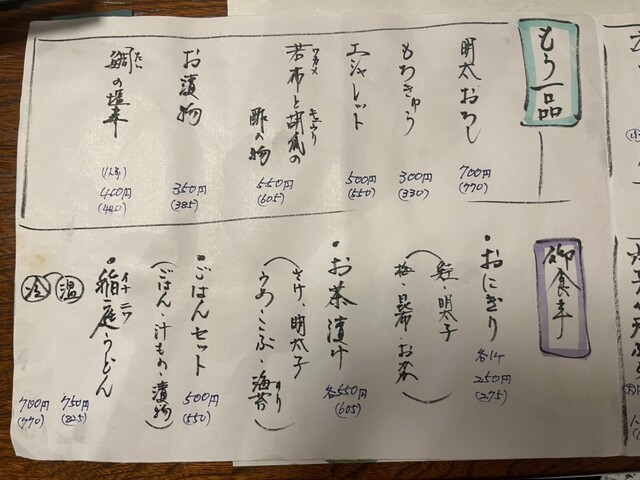 もう一品
明太おろし
700円
(770)
もろきゅう
300円
(330)
エシャレット
500円
(550)
ワカメ キュウリ
若布と胡瓜の
酢の物
550円
(605)
お漬物
350円
(385)
たい
鯛の塩辛
400円
(440)
御食事
・おにぎり
鮭・明太子
梅・昆布・お茶
各1ケ
250円
(275)
・お茶漬け
さけ、明太子
うめ・こぶ・海苔
のり
各550円
(605)
・ごはんセット
(ごはん・汁もの・漬物)
500円
(550)
イナニワ
・稲庭うどん
温
冷
750円
(825)
700円
(770)